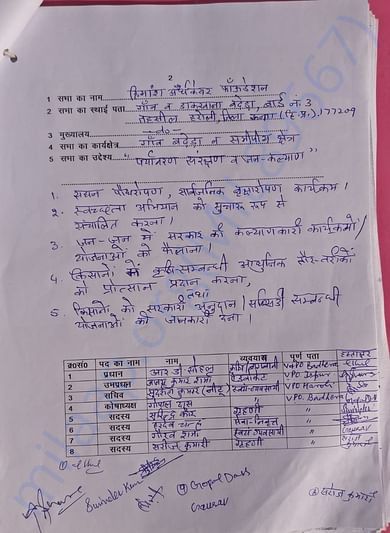 2
1 सभा का नाम हिमांश अर्थकेयर फाँऊडेशन
2 सभा का स्थाई पता गाँव व डाकखाना बढेड़ा, वार्ड नं. 3
तहसील हरोली, जिला ऊना (हि.प्र.) 177209
3 मुख्यालय -do-
4 सभा का कार्यक्षेत्र गाँव बढेड़ा व समीपीय क्षेत्र
5 सभा का उद्देश्य "पर्यावरण संरक्षण व जन-कल्याण"
1. सघन पौधारोपण, सार्वजनिक वृक्षारोपण कार्यक्रम।
2. स्वच्छता अभियान को सुचारू रूप से
संचालित करना।
3. जन-जन में सरकार की कल्याणकारी कार्यक्रमों/
योजनाओं को फैलाना।
4. किसानों को कृषि सम्बन्धी आधुनिक तौर-तरीकों
को प्रोत्साहन प्रदान करना,
तथा
5. किसानों को सरकारी अनुदान/सब्सिडी सम्बन्धी
योजनाओं की जानकारी देना।
क्र०सं० पद का नाम नाम व्यवसाय पूर्ण पता हस्ताक्षर
1 प्रधान आर डी VPO Badhera
2 उपप्रधान अजय कुमार शर्मा एडवोकेट VPO
3 सचिव कुमार स्वयं-व्यवसायी VPO
4 कोषाध्यक्ष गोपाल दास VPO. Badhera Gopal Dass
5 सदस्य सुरेन्द्र कौर गृहणी "
6 सदस्य सेवा-निवृत्त "
7 सदस्य गौरव शर्मा स्वयं व्यवसायी " Gaurav
8 सदस्य सरोज कुमारी गृहणी "
Surinder Kaur
Gopal Dass
Gaurav
सरोज कुमारी